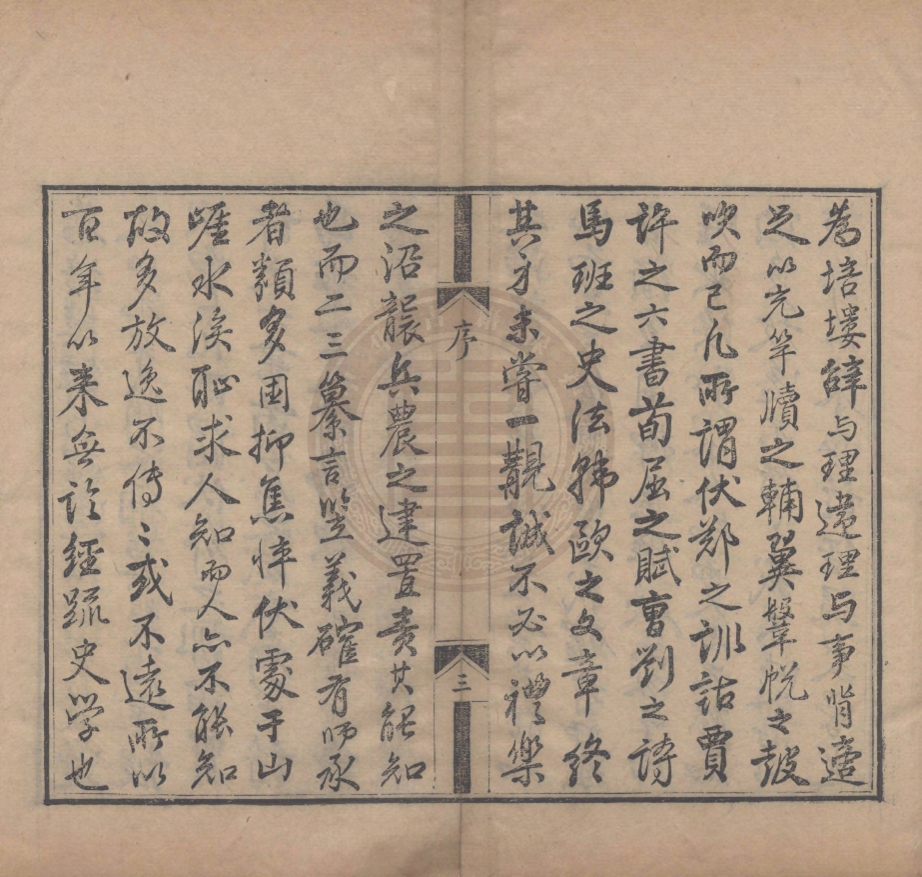 為培塿辭与理違理与事背適
足以充竿牘之輔翼鞶帨之鼓
吹而已凡所謂伏鄭之訓詁賈
許之六書荀屈之賦曹劉之詩
馬班之史法韩歐之文章終
其身未嘗一覯誠不必以禮樂
序
三
之沿襲兵農之建置責其能知
也而二三纂言豎義確有師承
者類多困抑焦悴伏處于山
崖水涘恥求人知而人亦不能知
故多放逸不傳〻或不遠所以
百年以来無論經疏史学也